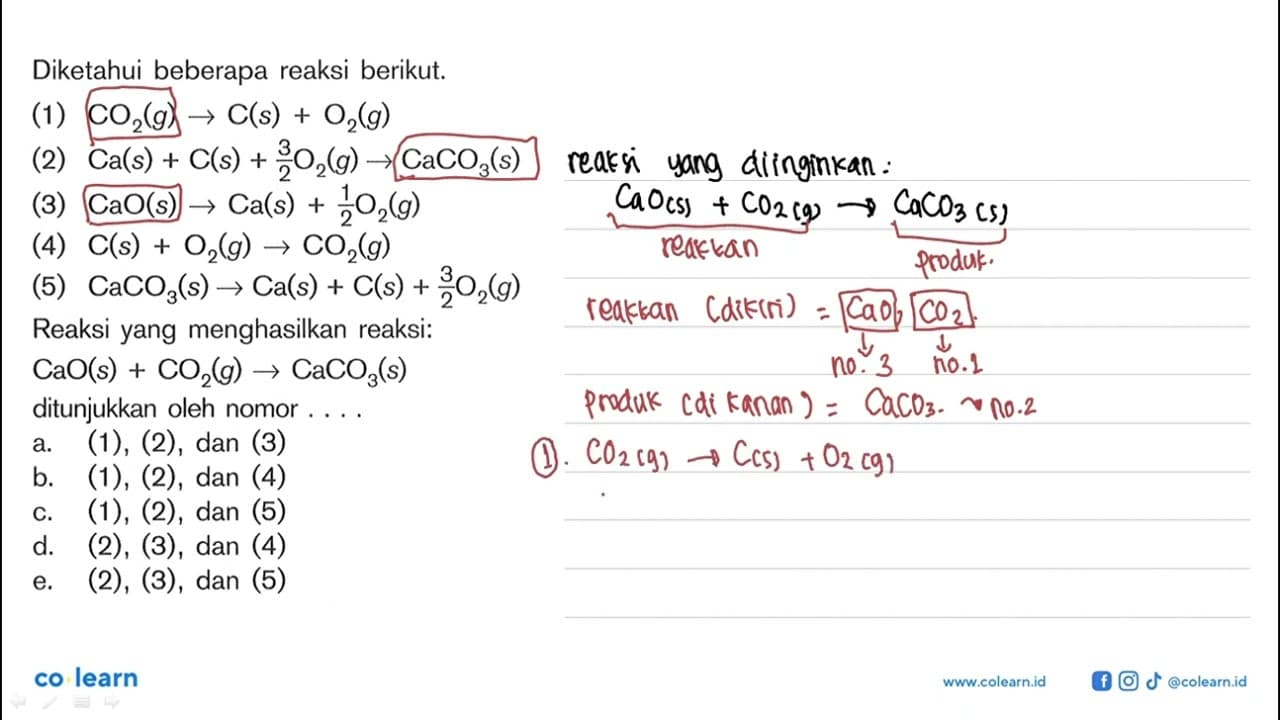 Diketahui beberapa reaksi berikut.
(1) CO₂(g) → C(s) + O₂(g)
(2) Ca(s) + C(s) + 3/2 O₂(g) → CaCO₃(s)
(3) CaO(s) → Ca(s) + 1/2 O₂(g)
(4) C(s) + O₂(g) → CO₂(g)
(5) CaCO₃(s) → Ca(s) + C(s) + 3/2 O₂(g)
Reaksi yang menghasilkan reaksi:
CaO(s) + CO₂(g) → CaCO₃(s)
ditunjukkan oleh nomor . . . .
a. (1), (2), dan (3)
b. (1), (2), dan (4)
c. (1), (2), dan (5)
d. (2), (3), dan (4)
e. (2), (3), dan (5)
reaksi yang diinginkan :
CaO(s) + CO₂(g) → CaCO₃(s)
reaktan produk.
reaktan (dikiri) = CaO, CO₂.
↓ ↓
no. 3 no.1
produk (di kanan) = CaCO₃. → no.2
①. CO₂(g) → C(s) + O₂(g)
co learn
www.colearn.id @colearn.id